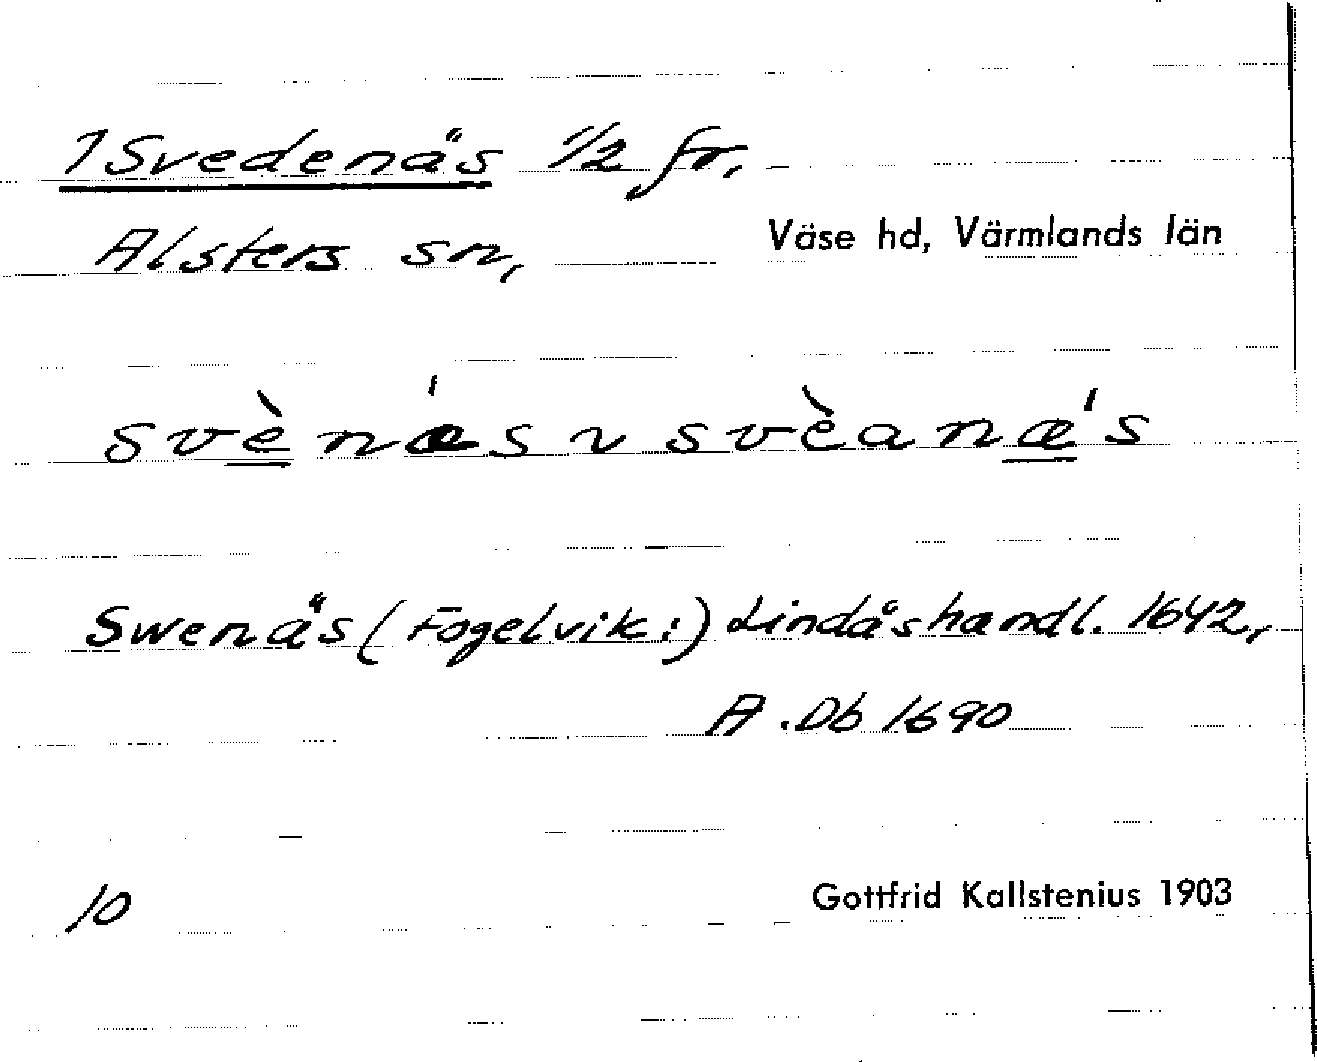 1 Svedenäs 1/2 fr,
Alsters sn,
Väse hd, Värmlands län
svè næ´s v svèanæ´s
Swenäs (Fogelvik:) Lindåshandl. 1642,
A. Db 1690
10
Gottfrid Kallstenius 1903